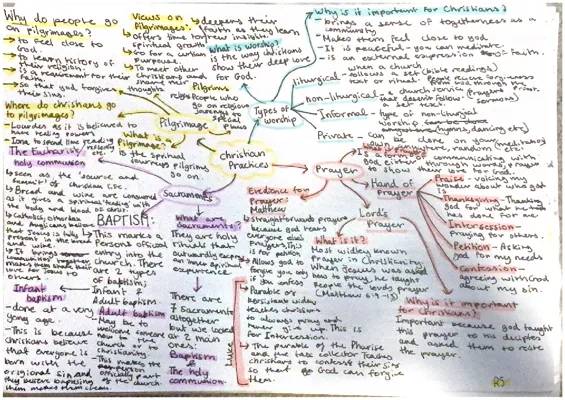 Why do people go on pilgrimages?
- to feel close to God.
- to learn history of their religion.
- is a requirement for their faith.
- so that God forgives their sins.
Where do christians go to pilgrimages?
- Lourdes as it is believed to have healing powers
- Iona to spend time reading
Views on Pilgrimages:
- deepens their faith as they learn
- offers time for spiritual growth
- Go for a certain purpose.
- To meet other Christians and share their thoughts
Pilgrims
People who go on religious journeys to special places
Pilgrimage
What is a Pilgrimage?
Is the spiritual journeys pilgrims go on
What is worship?
is the way christians show their deep love for God.
Types of worship
Why is it important for Christians?
- brings a sense of togetherness as a community
- Makes them feel close to god
- It is peaceful - you can meditate.
- is an external expression of faith.
liturgical - when a church follows a set text or ritual. (bible readings)
non-liturgical - a church service that doesn't follow a set text
Informal - type of non-liturgical worship (hymns, dancing etc)
Private - can be done on your own, random etc.
Christian Practices
Prayer
Is a form of communicating with god either through words, praise to show their love for God.
Hand of Prayer
Praise - voicing my wonder about who god is
Thanksgiving - Thanking God for what he has done for me
Intercession - Praying for others.
Petition - Asking god for my needs
Confession - Agreeing with God about my sin.
Lord's Prayer
What is it?
Most widely known prayer in Christianity. When Jesus was asked how to pray, he taught people the lord's prayer (Matthew 6:9-15)
Why is it important for christians?
Important because god taught this prayer to his disciples and asked them to recite the prayer.
Evidence for Prayer:
Matthew
- straightforward prayers because god hears everyone else's prayers. This is for Petition
- Allows god to forgive you only if you confess
Luke
- Parable of Persistent widow teaches christians to always pray and never give up. This is for Intercession.
- The parable of the Pharisee and the tax collector teaches christians to confess their sins so that God can forgive them.
Sacraments
What are Sacraments?
They are holy rituals that outwardly express an inner spiritual experience
There are 7 Sacraments altogether but we looked at 2 main ones.
Baptism
The holy communion
The Eucharist/ holy communion
- seen as the 'source and summit' of christian life.
- Bread and wine are consumed as it gives a spiritual feeding with the body and blood of christ.
- Catholics, orthodox and Anglicans believe that Jesus is fully present in the bread and wine
BAPTISM:
This marks a Persons official entry into the Church. There are 2 types of baptism; Infant & Adult baptism
Infant baptism
- done at a very young age.
- This is because christians believe that everyone is born with the original sin and they believe baptising them makes them clean.
Adult baptism
- May be to welcome someone new to the church or to christianity.
- This makes the person officially part of the church.